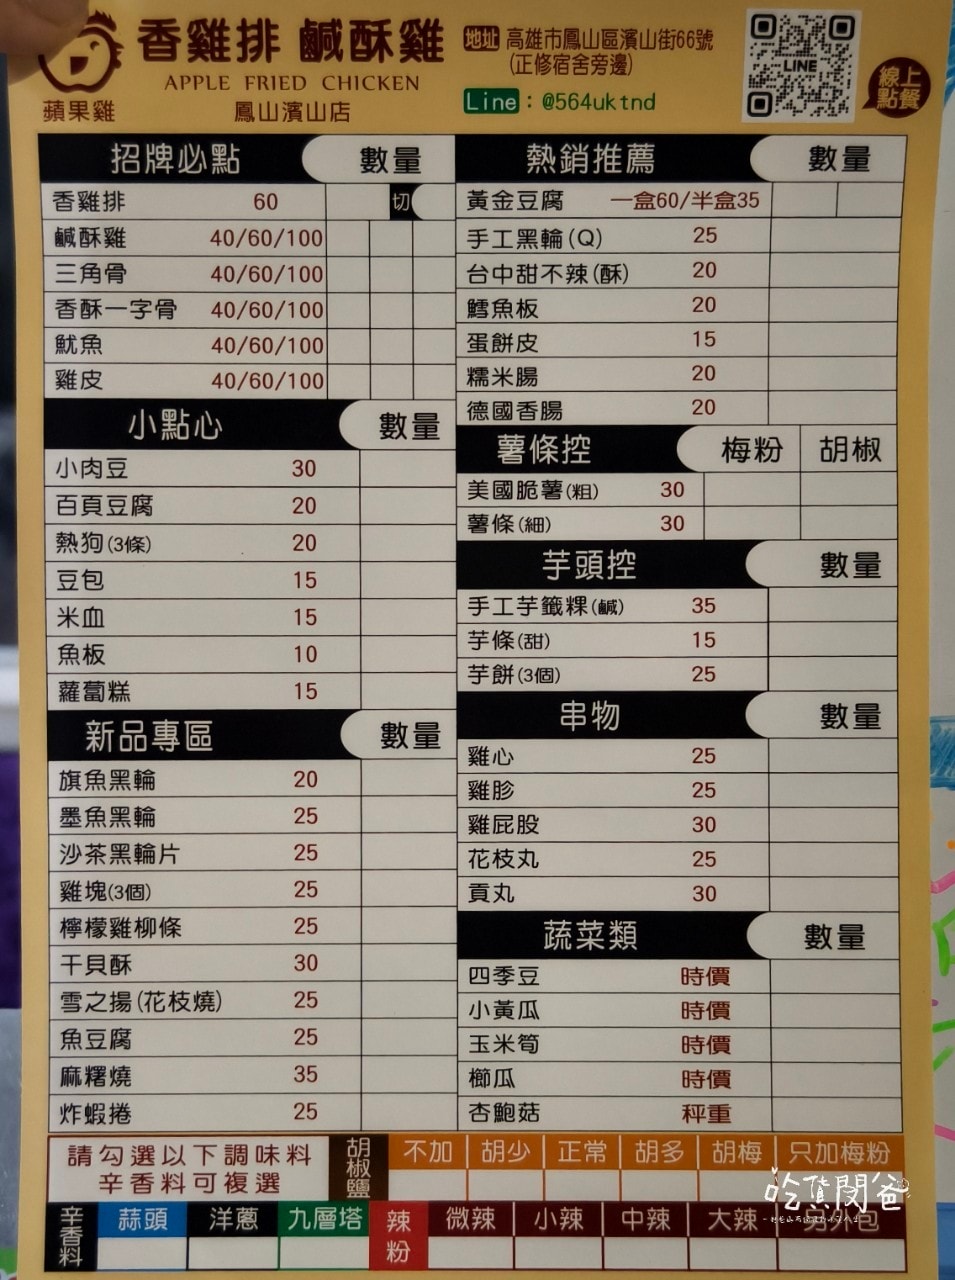 香雞排 鹹酥雞
APPLE FRIED CHICKEN
蘋果雞
鳳山濱山店
地址 高雄市鳳山區濱山街66號
(正修宿舍旁邊)
Line：@564uktnd
LINE
線上
點餐
招牌必點 數量
香雞排 60 切
鹹酥雞 40/60/100
三角骨 40/60/100
香酥一字骨 40/60/100
魷魚 40/60/100
雞皮 40/60/100
小點心 數量
小肉豆 30
百頁豆腐 20
熱狗(3條) 20
豆包 15
米血 15
魚板 10
蘿蔔糕 15
新品專區 數量
旗魚黑輪 20
墨魚黑輪 25
沙茶黑輪片 25
雞塊(3個) 25
檸檬雞柳條 25
干貝酥 30
雪之揚(花枝燒) 25
魚豆腐 25
麻糬燒 35
炸蝦捲 25
熱銷推薦 數量
黃金豆腐 一盒60/半盒35
手工黑輪(Q) 25
台中甜不辣(酥) 20
鱈魚板 20
蛋餅皮 15
糯米腸 20
德國香腸 20
薯條控 梅粉 胡椒
美國脆薯(粗) 30
薯條(細) 30
芋頭控 數量
手工芋籤粿(鹹) 35
芋條(甜) 15
芋餅(3個) 25
串物 數量
雞心 25
雞胗 25
雞屁股 30
花枝丸 25
貢丸 30
蔬菜類 數量
四季豆 時價
小黃瓜 時價
玉米筍 時價
櫛瓜 時價
杏鮑菇 秤重
請勾選以下調味料
辛香料可複選
胡椒鹽 不加 胡少 正常 胡多 胡梅 只加梅粉
辛香料 蒜頭 洋蔥 九層塔 辣粉 微辣 小辣 中辣 大辣 另外包
吃貨閔爸